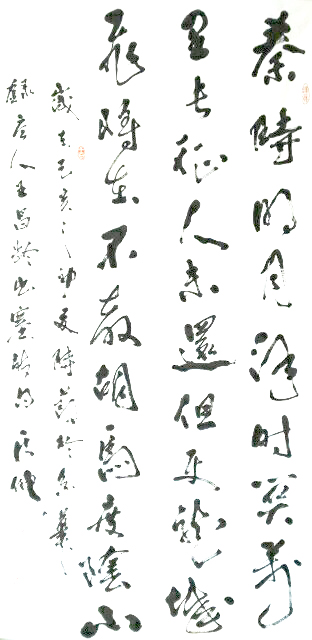 秦時明月漢时关萬
里长征人未還但使龍城
飛將在不教胡馬度陰山
歲在己亥之初夏時節於
錄唐人王昌齡出塞詩